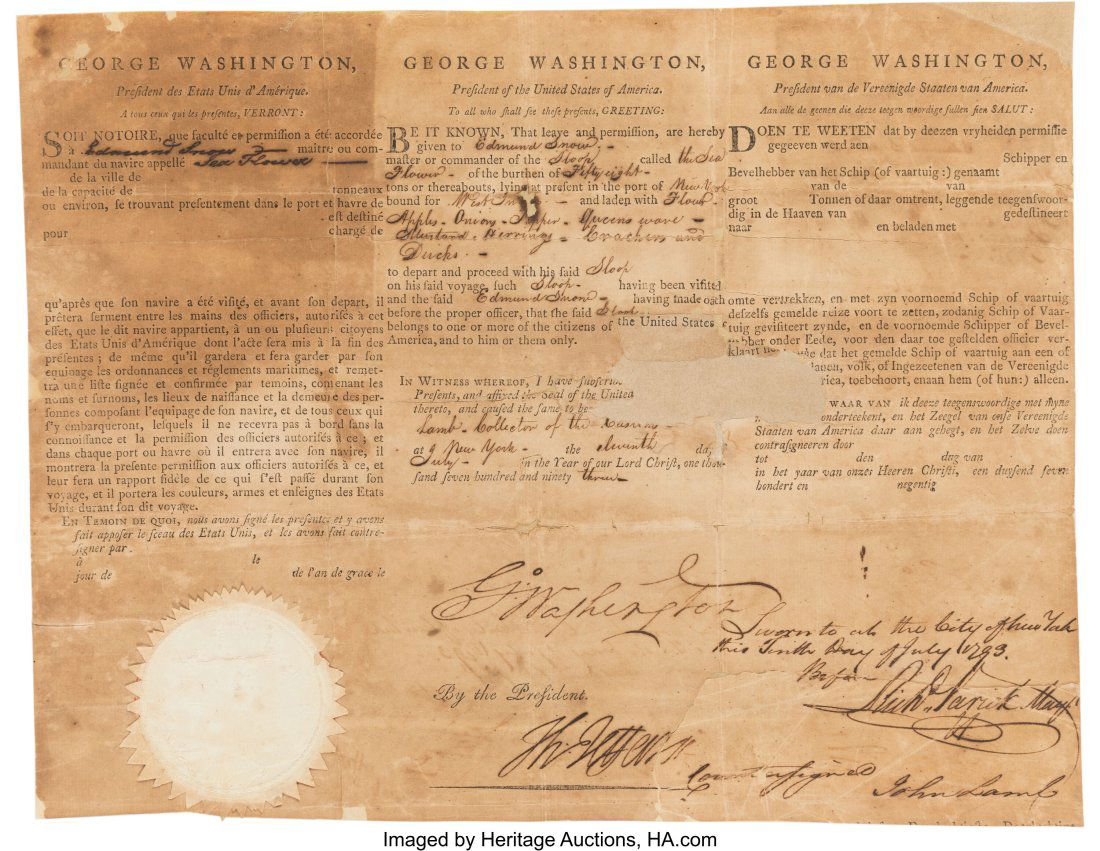 GEORGE WASHINGTON,
Preſident des Etats Unis d'Amérique.
A tous ceux qui les preſentes, VERRONT:
SOIT NOTOIRE, que faculté et permiſſion a été accordée
a Edmund Snow maitre ou com-
mandant du navire appellé Sea Flower
de la ville de
de la capacité de tonneaux
ou environ, ſe trouvant preſentement dans le port et havre de
eſt deſtiné
pour chargé de
qu'après que ſon navire a été viſité, et avant ſon depart, il
prêtera ſerment entre les mains des officiers, autoriſés à cet
effet, que le dit navire appartient, à un ou pluſieurs citoyens
des Etats Unis d'Amérique dont l'acte ſera mis à la fin des
préſentes; de même qu'il gardera et fera garder par ſon
equipage les ordonnances et réglements maritimes, et remet-
tra une liſte ſignée et confirmée par temoins, contenant les
noms et ſurnoms, les lieux de naiſſance et la demeure des per-
ſonnes compoſant l'equipage de ſon navire, et de tous ceux qui
ſ'y embarqueront, leſquels il ne recevra pas à bord ſans la
connoiſſance et la permiſſion des officiers autoriſés à ce; et
dans chaque port ou havre où il entrera avec ſon navire, il
montrera la preſente permiſſion aux officiers autoriſés à ce, et
leur fera un rapport fidèle de ce qui ſ'eſt paſſé durant ſon
voyage, et il portera les couleurs, armes et enſeignes des Etats
Unis durant ſon dit voyage.
EN TEMOIN DE QUOI, nous avons ſigné les preſentes et y avons
fait appoſer le ſceau des Etats Unis, et les avons fait contre-
ſigner par
à le
jour de de l'an de grace le
GEORGE WASHINGTON,
Preſident of the United States of America.
To all who ſhall ſee theſe preſents, GREETING:
BE IT KNOWN, That leave and permiſſion, are hereby
given to Edmund Snow
maſter or commander of the Sloop called the Sea
Flower of the burthen of Fifty eight
tons or thereabouts, lying at preſent in the port of New York
bound for West and laden with Flour
Apples - Onions - Queens ware -
Mustard - Herrings - Crackers and
Ducks.
to depart and proceed with his ſaid Sloop
on his ſaid voyage, ſuch Sloop having been viſited
and the ſaid Edmund Snow having made oath
before the proper officer, that the ſaid Sloop
belongs to one or more of the citizens of the United States
America, and to him or them only.
IN WITNESS WHEREOF, I have
Preſents, and affixed the Seal of the United
thereto, and cauſed the ſame to be
Lamb - Collector of the
at New York the eleventh
July in the Year of our Lord Chriſt, one
ſand ſeven hundred and ninety three
GEORGE WASHINGTON,
Preſident van de Vereenigde Staaten van America.
Aan alle de geenen die deeze teegen woordige ſullen ſien SALUT:
DOEN TE WEETEN dat by deezen vryheiden permiſſie
gegeeven werd aen
Schipper en
Bevelhebber van het Schip (of vaartuig:) genaamt
van de van
groot Tonnen of daar omtrent, leggende teegenſwoor-
dig in de Haaven van gedeſtineert
naar en beladen met
omte vertrekken, en met zyn voornoemd Schip of vaartuig
deſzelfs gemelde reize voort te zetten, zodanig Schip of Vaar-
tuig geviſiteert zynde, en de voornoemde Schipper of Bevel-
hebber onder Eede, voor den daar toe geſtelden officier ver-
klaart dat het gemelde Schip of vaartuig aan een of
volk, of Ingezeetenen van de Vereenigde
toebehoort, enaan hem (of hun:) alleen.
WAAR VAN ik deeze teegenswoordige met myne
onderteekent, en het Zeegel van onſe Vereenigde
Staaten van America daar aan gehegt, en het Zelve doen
contraſigneeren door
tot den dag van
in het yaar van onzer Heeren Chriſti, een duyſend ſeven
hondert en negentig
G. Washington
Sworn to at the City of New York
this Tenth Day of July 1793.
Before
Richd. Varick Mayor
By the Preſident.
Th: Jefferson
Countersigned
John Lamb
Imaged by Heritage Auctions, HA.com